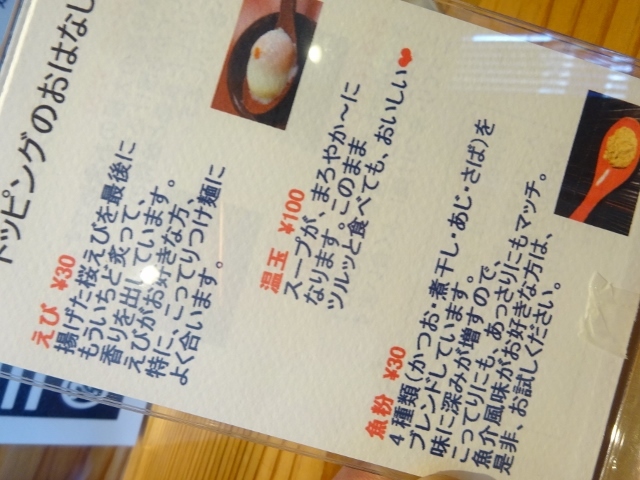 トッピングのおはなし
えび ¥30
揚げた桜えびを最後に
もういちど炙って、
香りを出しています。
えびがお好きな方、
特に、こってりつけ麺に
よく合います。
温玉 ¥100
スープが、まろやか〜に
なります。このまま
ツルッと食べても、おいしい♥
魚粉 ¥30
4種類(かつお・煮干し・あじ・さば)を
ブレンドしています。
味に深みが増すので、
こってりにも、あっさりにもマッチ。
魚介風味がお好きな方は、
是非、お試しください。